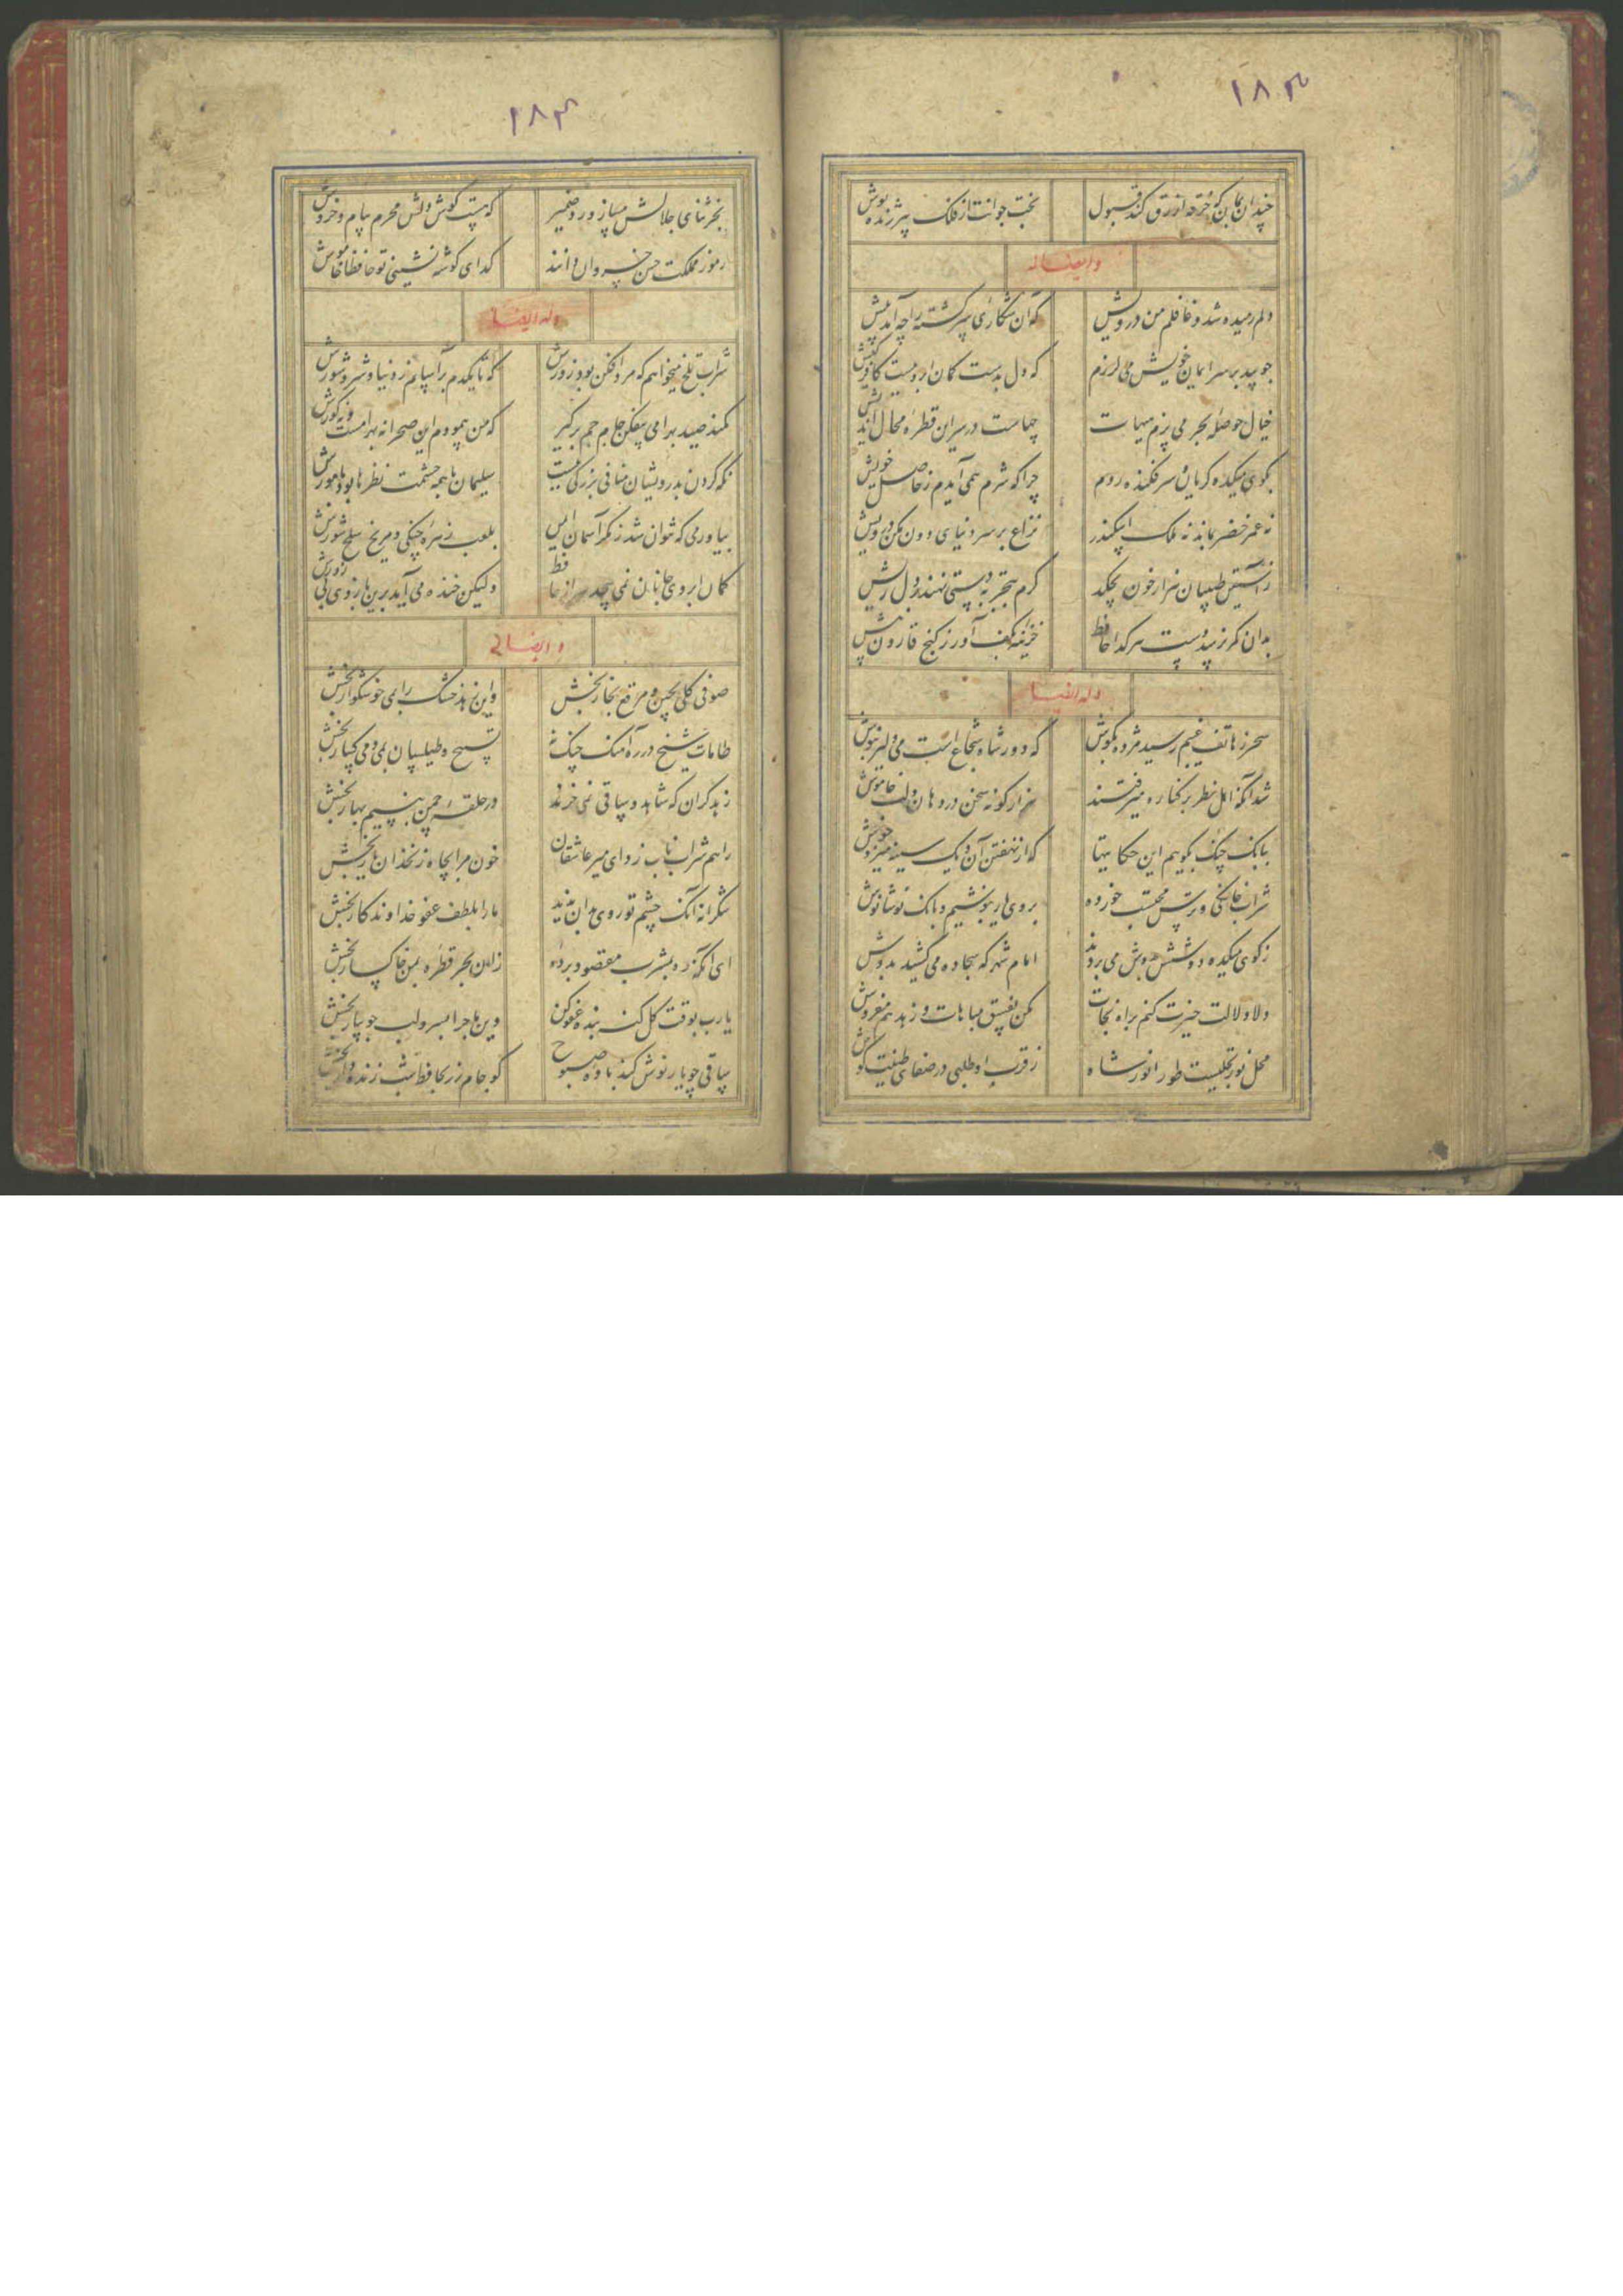 ۱۸۳
چندان بمان که خرقه ازرق کند قبول
بخت جوانت از فلک پیر ژنده پوش
وایضا له
دلم رمیده شد و غافلم من درویش
که آن شکاری سرگشته را چه آمد پیش
چو بید بر سر ایمان خویش می لرزم
که دل بدست کمان ابرویست کافرکیش
خیال حوصله بحر می پزم هیهات
چهاست در سر این قطره محال اندیش
بکوی میکده گریان و سرفکنده روم
چرا که شرم همی آیدم ز حاصل خویش
نه عمر خضر بماند نه ملک اسکندر
نزاع بر سر دنیای دون مکن درویش
ز آستین طبیبان هزار خون بچکد
گرم بتجربه دستی نهند بر دل ریش
بدان کمر نرسد دست هر گدا حافظ
خزینه بکف آور ز گنج قارون بیش
وله ایضا
سحر ز هاتف غیبم رسید مژده بگوش
که دور شاه شجاع است می دلیر بنوش
شد آنکه اهل نظر بر کناره میرفتند
هزار گونه سخن در دهان و لب خاموش
ببانک چنک بگوییم این حکایتها
که از نهفتن آن دیک سینه میزد جوش
شراب خانگی ترس محتسب خورده
بروی یار بنوشیم و بانک نوشانوش
ز کوی میکده دوشش بدوش می بردند
امام شهر که سجاده می کشید بدوش
دلا دلالت خیرت کنم براه نجات
مکن بفسق مباهات و زهد هم مفروش
محل نور تجلیست طور انور شاه
ز قرب او طلبی در صفای طینت کوش
۱۸۴
بجز ثنای جلالش مساز ورد ضمیر
که هست گوش دلش محرم پیام و خروش
رموز مملکت حسن خسروان دانند
گدای گوشه نشینی تو حافظا خاموش
وله ایضا
شراب تلخ میخواهم که مرد افکن بود زورش
که تا یکدم برآسایم ز دنیا و شر و شورش
کمند صید بهرامی بیفکن جام جم برگیر
که من پیمودم این صحرا نه بهرامست و نه گورش
نگه کردن بدرویشان منافی بزرگی نیست
سلیمان با همه حشمت نظرها بود با مورش
بیاور می که نتوان شد ز مکر آسمان ایمن
بلعب زهره چنگی و مریخ سلحشورش
کمان ابروی جانان نمی پیچد سر از حافظ
ولیکن خنده می آید برین بازوی بی زورش
وایضا له
صوفی گلی بچین و مرقع بخار بخش
واین زهد خشک را بمی خوشگوار بخش
طامات شیخ در ره آهنک چنک نه
تسبیح و طیلسان بمی و میگسار بخش
زهد گران که شاهد و ساقی نمی خرند
در حلقه چمن بنسیم بهار بخش
راهم شراب ناب زد ای میر عاشقان
خون مرا بچاه زنخدان یار بخش
شکرانه آنک چشم تو روی بدان ندید
ما را بلطف عفو خداوندکار بخش
ای آنکه ره بمشرب مقصود برده
زان بحر قطره بمن خاکسار بخش
یا رب بوقت گل گنه بنده عفو کن
وین ماجرا بسرو لب جویبار بخش
ساقی چو یار نوش کند باده صبوح
گو جام زر بحافظ شب زنده دار بخش